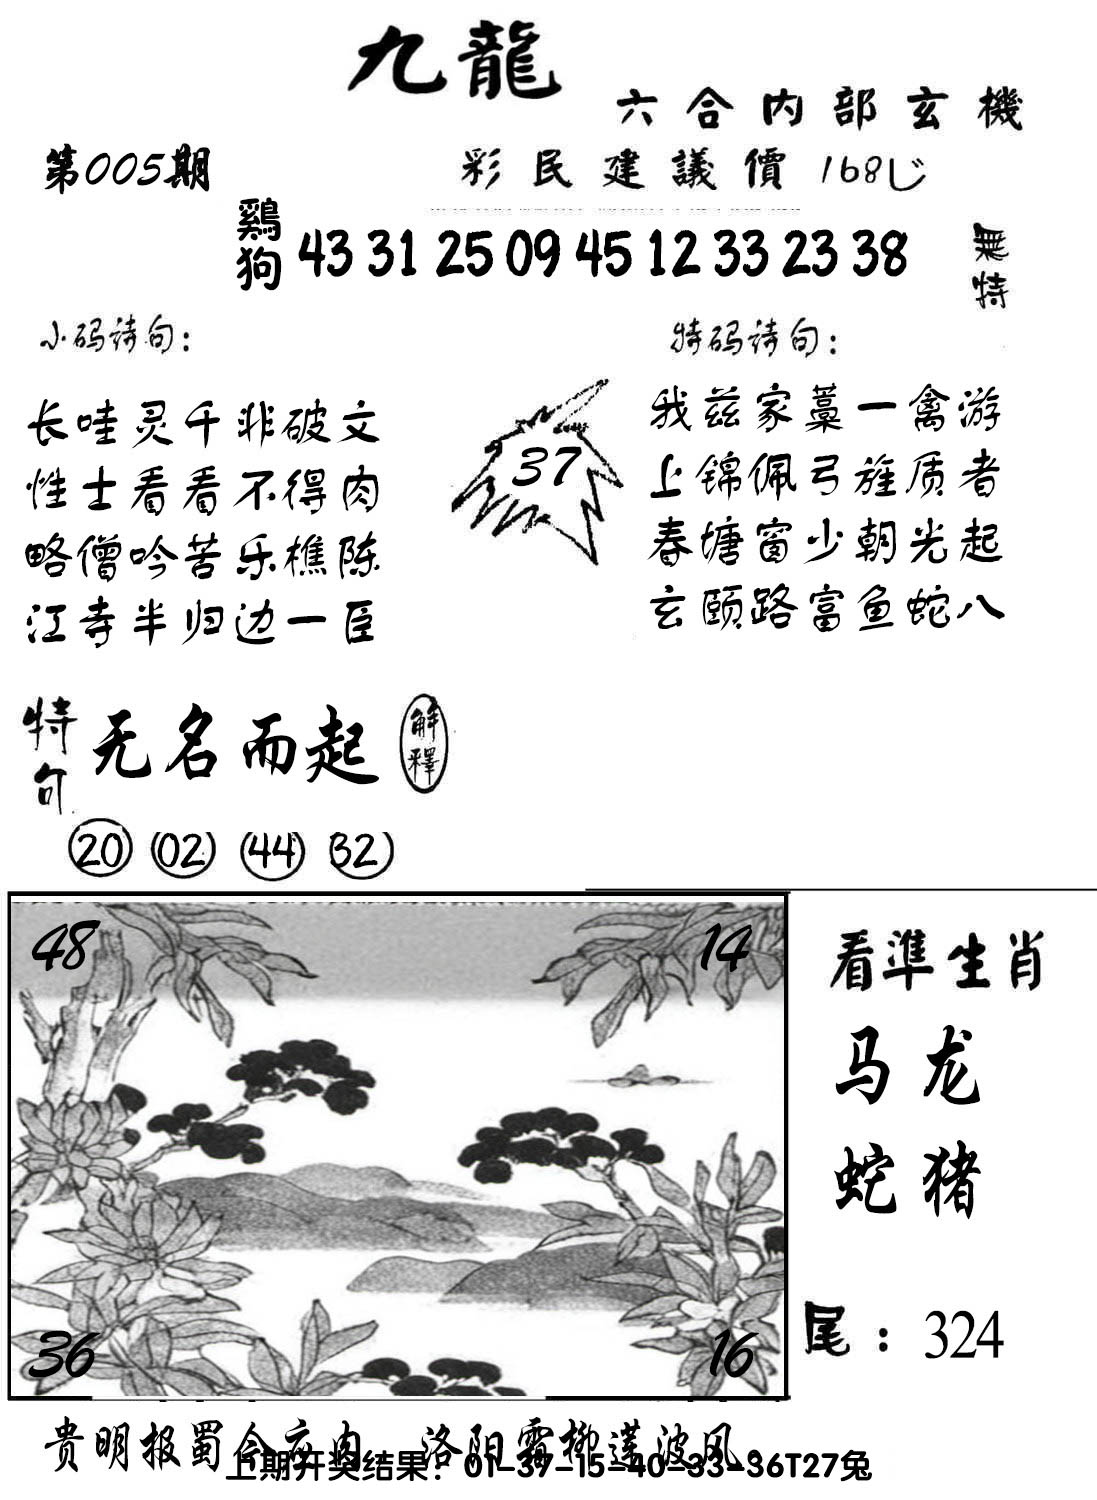 九龍
六合内部玄機
第005期
彩民建議價168
鷄狗 43 31 25 09 45 12 33 23 38
無特
小码诗句：
长哇灵千非破文
性士看看不得肉
略僧吟苦乐樵陈
江寺半归边一臣
37
特码诗句：
我兹家藁一禽游
上锦佩弓旌质者
春塘窗少朝光起
玄颐路富鱼蛇八
特句 无名而起 解釋
20 02 44 32
48 14
36 16
看準生肖
马龙
蛇猪
尾：324
贵明报蜀令应肉 洛阳霜柳莲波风。
上期开奖结果：01-37-15-40-33-36T27兔